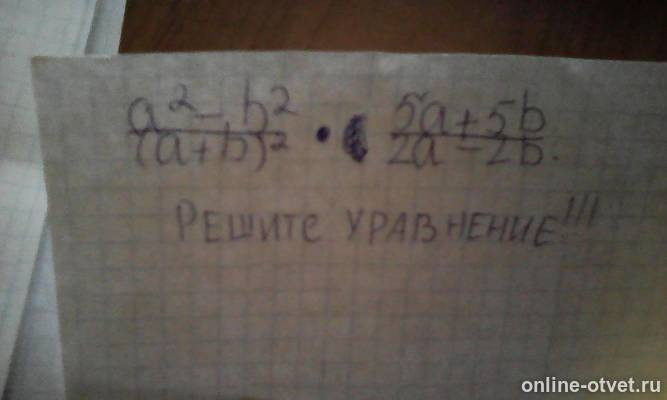 a² - b² / (a+b)² • 5a+5b / 2a-2b.
РЕШИТЕ УРАВНЕНИЕ!!!
online-otvet.ru